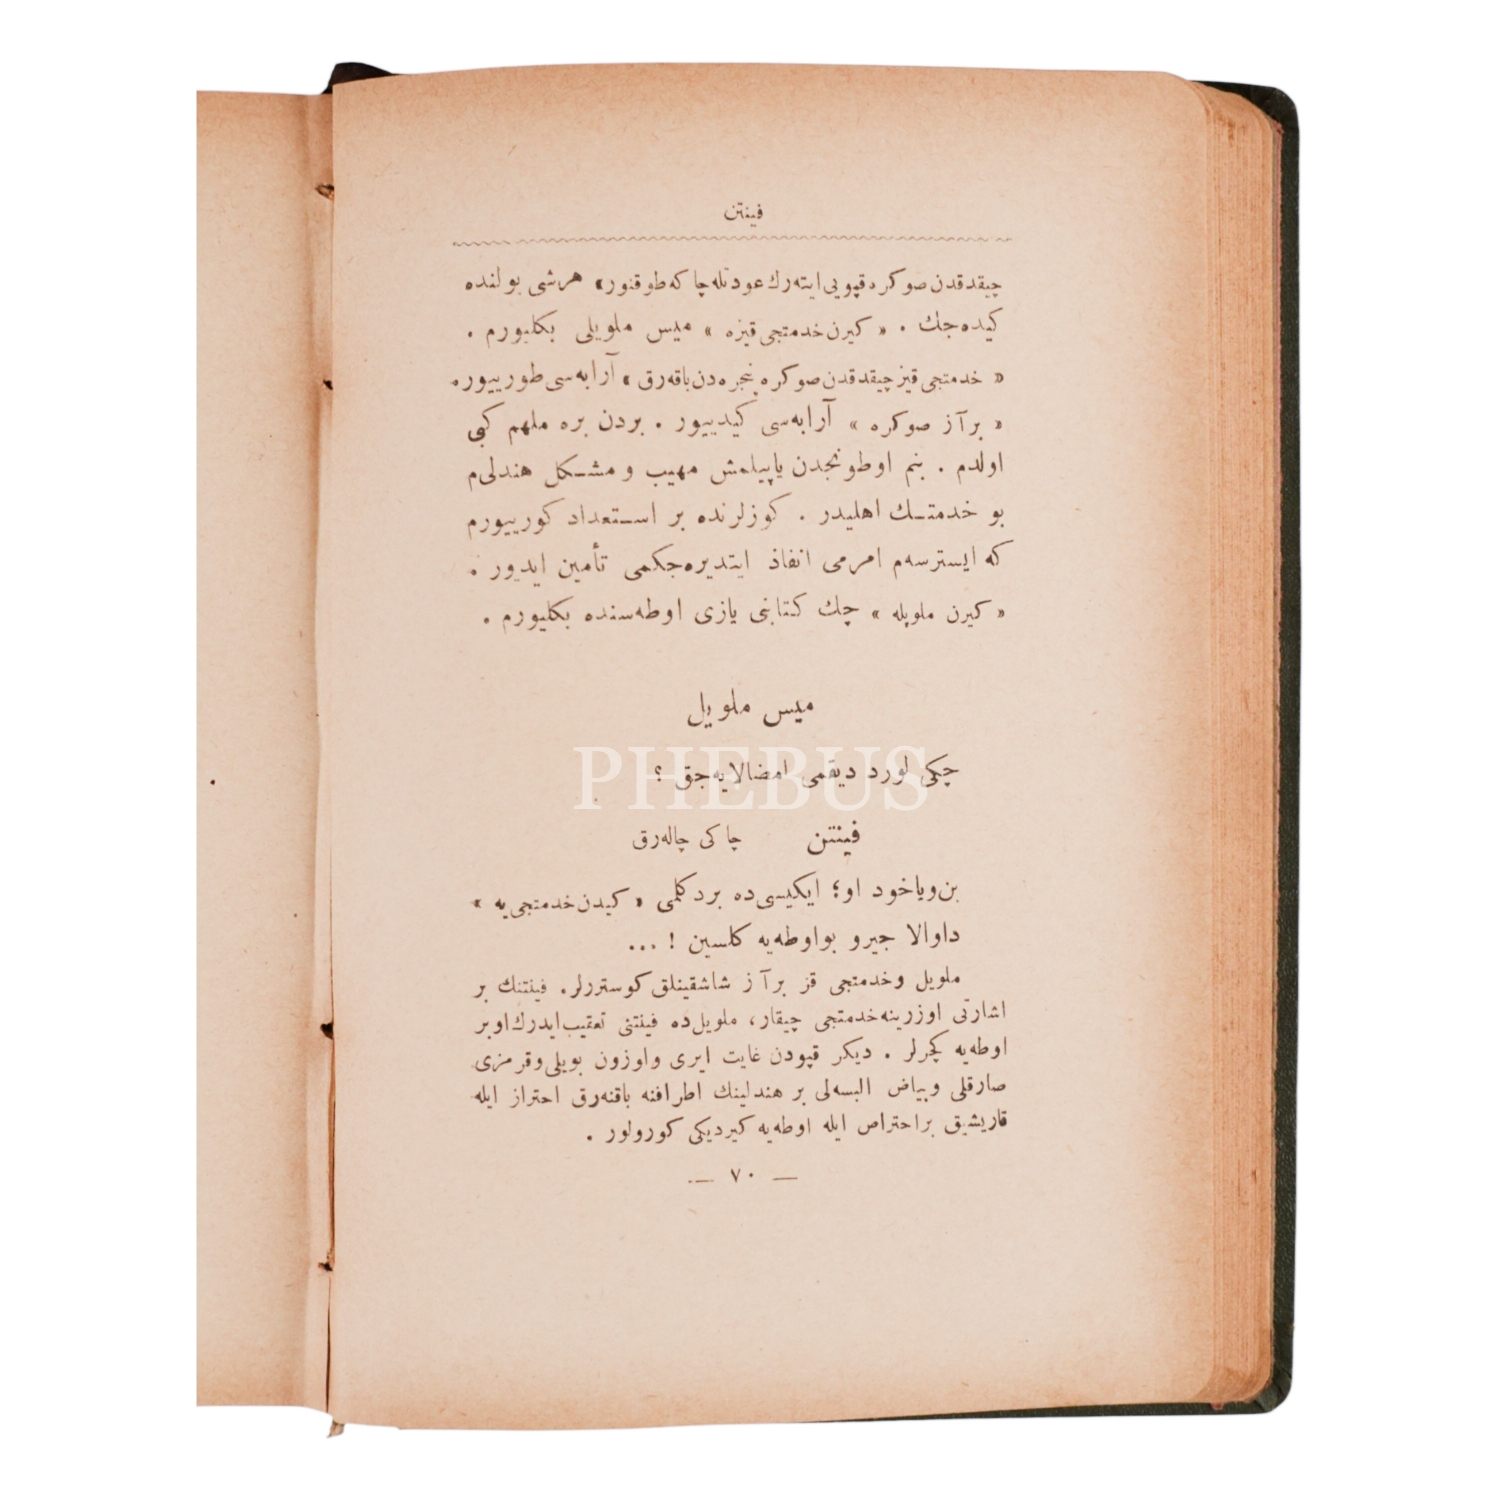 فينتن
چيقدقدن صوكره قپويی ايته‌رك عودتله چاكه طوقنور» هرشی يولنده
كيده‌جك . « كيرن خدمتجی قيزه » ميس ملويلی بكليورم .
« خدمتجی قيز چيقدقدن صوكره پنجره‌دن باقه‌رق » آرابه‌سی طورييور.
« برآز صوكره » آرابه‌سی كيدييور . بردن بره ملهم كبی
اولدم . بنم اوطونجدن ياپيلمش مهيب و مشكل هندلی‌م
بو خدمتك اهليدر . كوزلرنده بر استعداد كورييورم
كه ايسترسه‌م امرمی انفاذ ايتديره‌جكمی تأمين ايديور .
« كيرن ملويله » چك كتابنی يازی اوطه‌سنده بكليورم .
ميس ملويل
چكی لورد ديقمی امضالايه‌جق ؟
فينتن چاكی چاله‌رق
بن‌وياخود او؛ ايكيسی‌ده بردكلمی « كيدن خدمتجی‌يه »
داوالا جيرو بواوطه‌يه كلسين ! ...
ملويل وخدمتجی قز برآز شاشقينلق كوستررلر. فينتنك بر
اشارتی اوزرينه‌خدمتجی چيقار، ملويل‌ده فينتنی تعقيب‌ايدرك‌اوبر
اوطه‌يه كچرلر . ديكر قپودن غايت ايری واوزون بويلی‌وقرمزی
صارقلی وبياض البسه‌لی بر هندلينك اطرافنه باقنه‌رق احتراز ايله
قاريشيق براحتراص ايله اوطه‌يه كيرديكی كورولور .
— ٧٠ —
PHEBUS